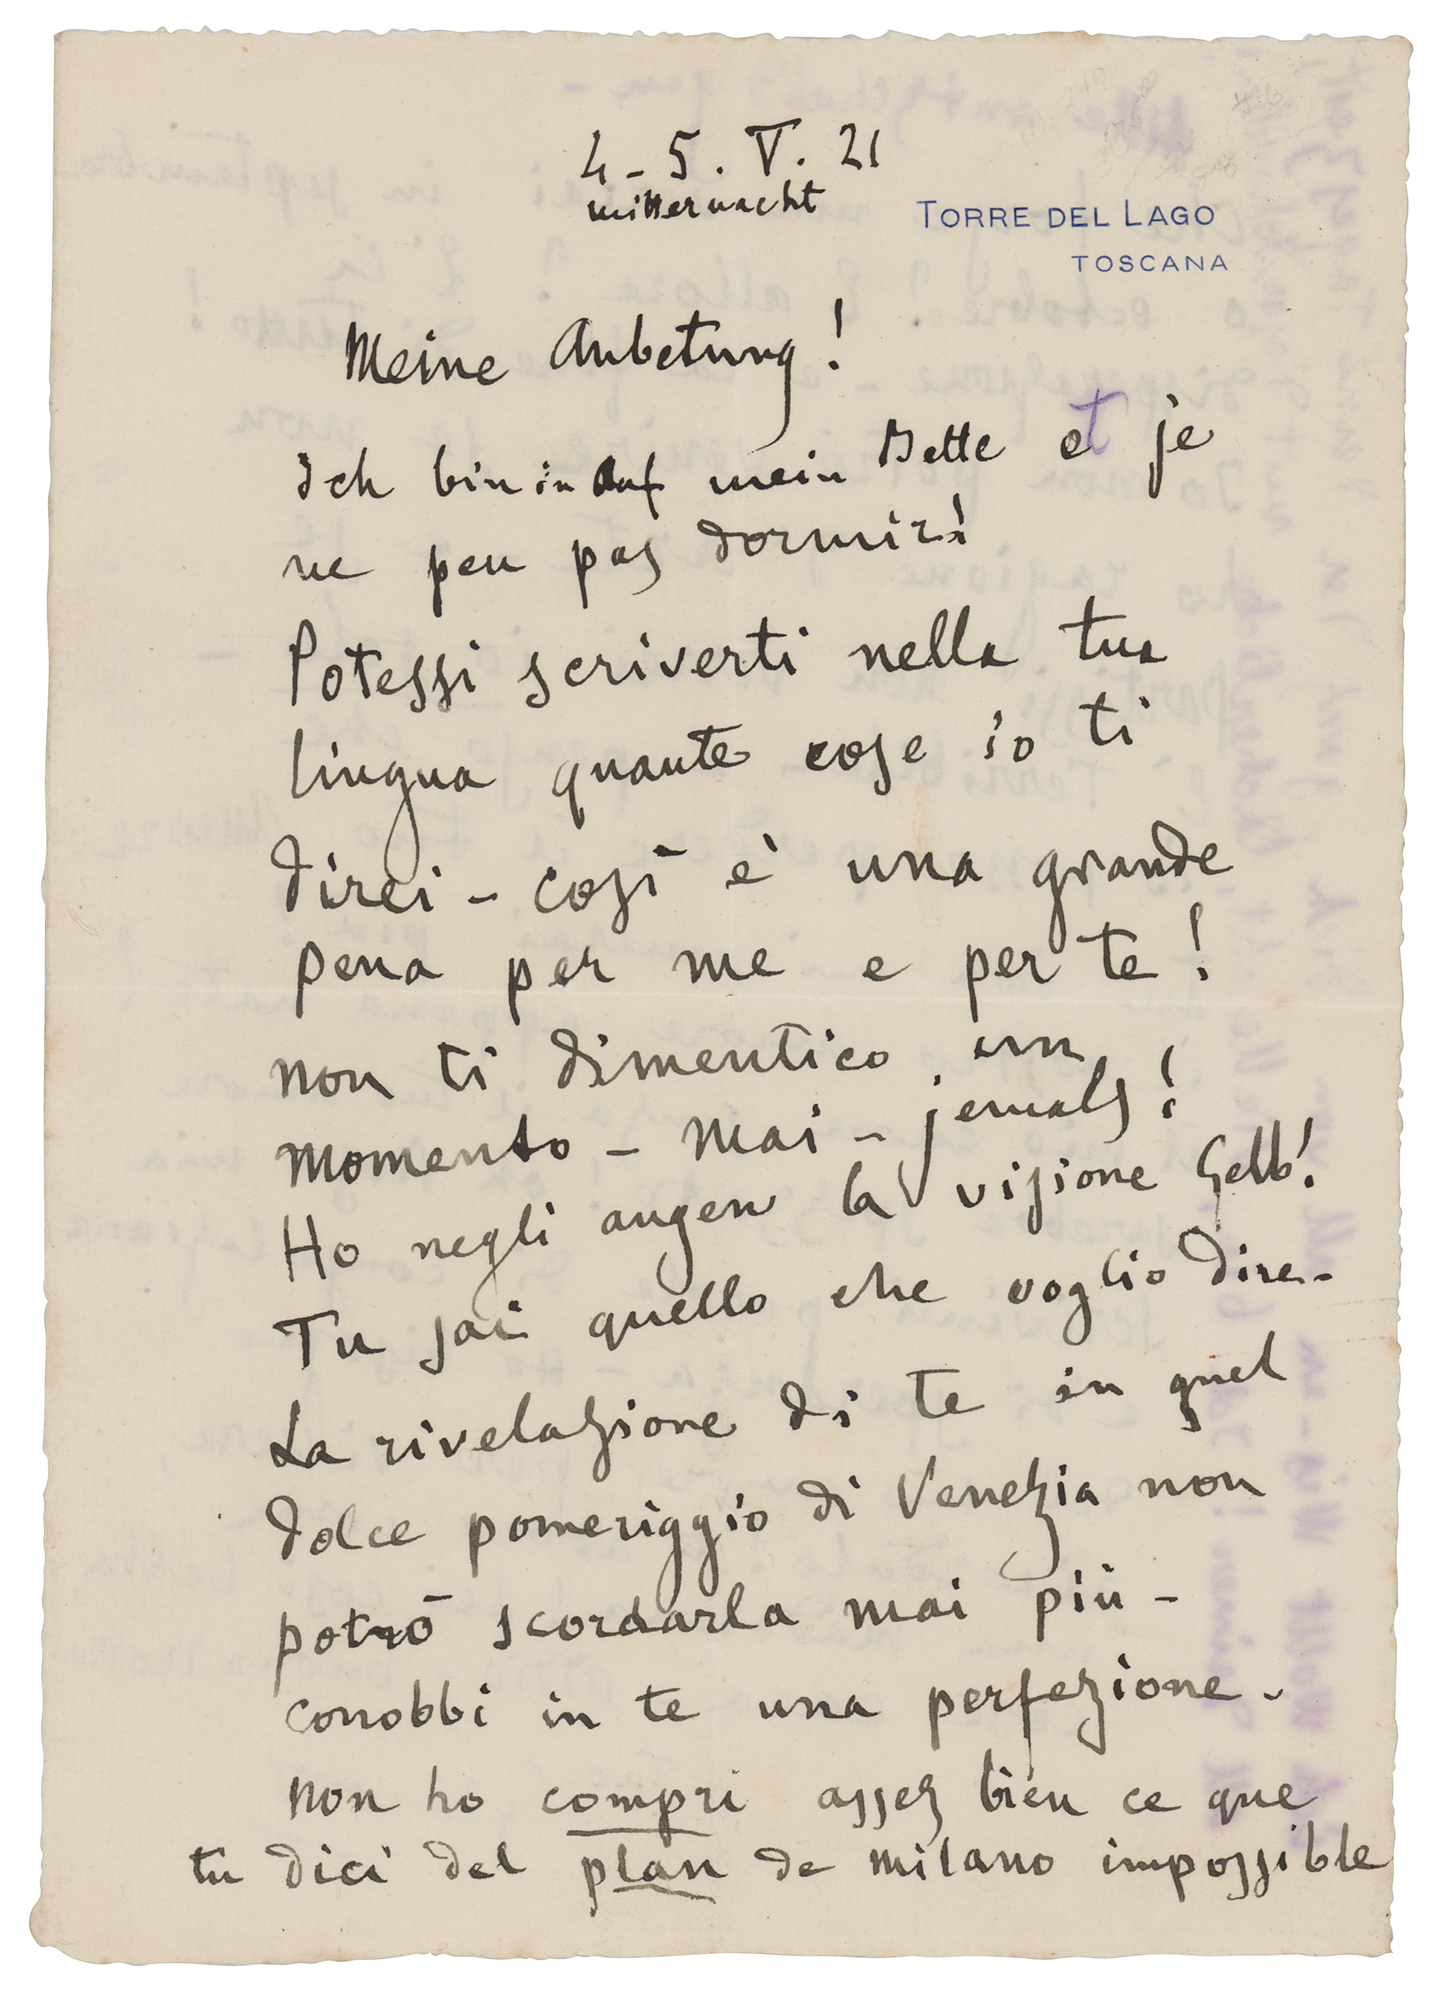 4-5. V. 21
mitternacht
TORRE DEL LAGO
TOSCANA
Meine Anbetung!
Ich bin in auf mein Bette et je
ne peu pas dormir!
Potessi scriverti nella tua
lingua quante cose io ti
direi - così è una grande
pena per me e per te!
non ti dimentico un
momento - mai - jemals!
Ho negli augen la visione Gelb!
Tu sai quello che voglio dire -
La rivelazione di te in quel
dolce pomeriggio di Venezia non
potrò scordarla mai più -
conobbi in te una perfezione -
non ho compri assez bien ce que
tu dici del plan de milano impossible